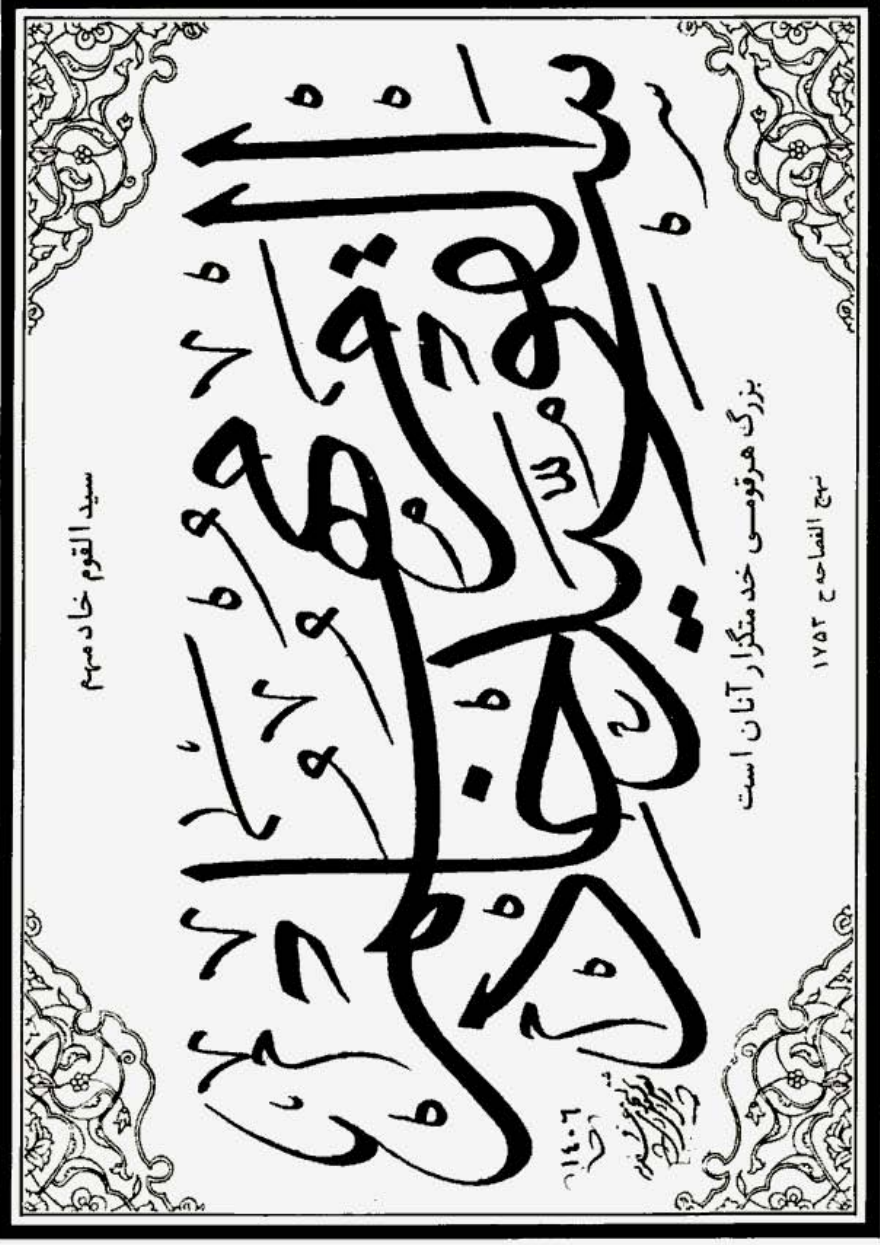 سید القوم خادمهم
سید القوم خادمهم
بزرگ هرقومی خدمتگزار آنان است
نهج الفصاحه ح ۱۷۵۳
۱۴۰۶